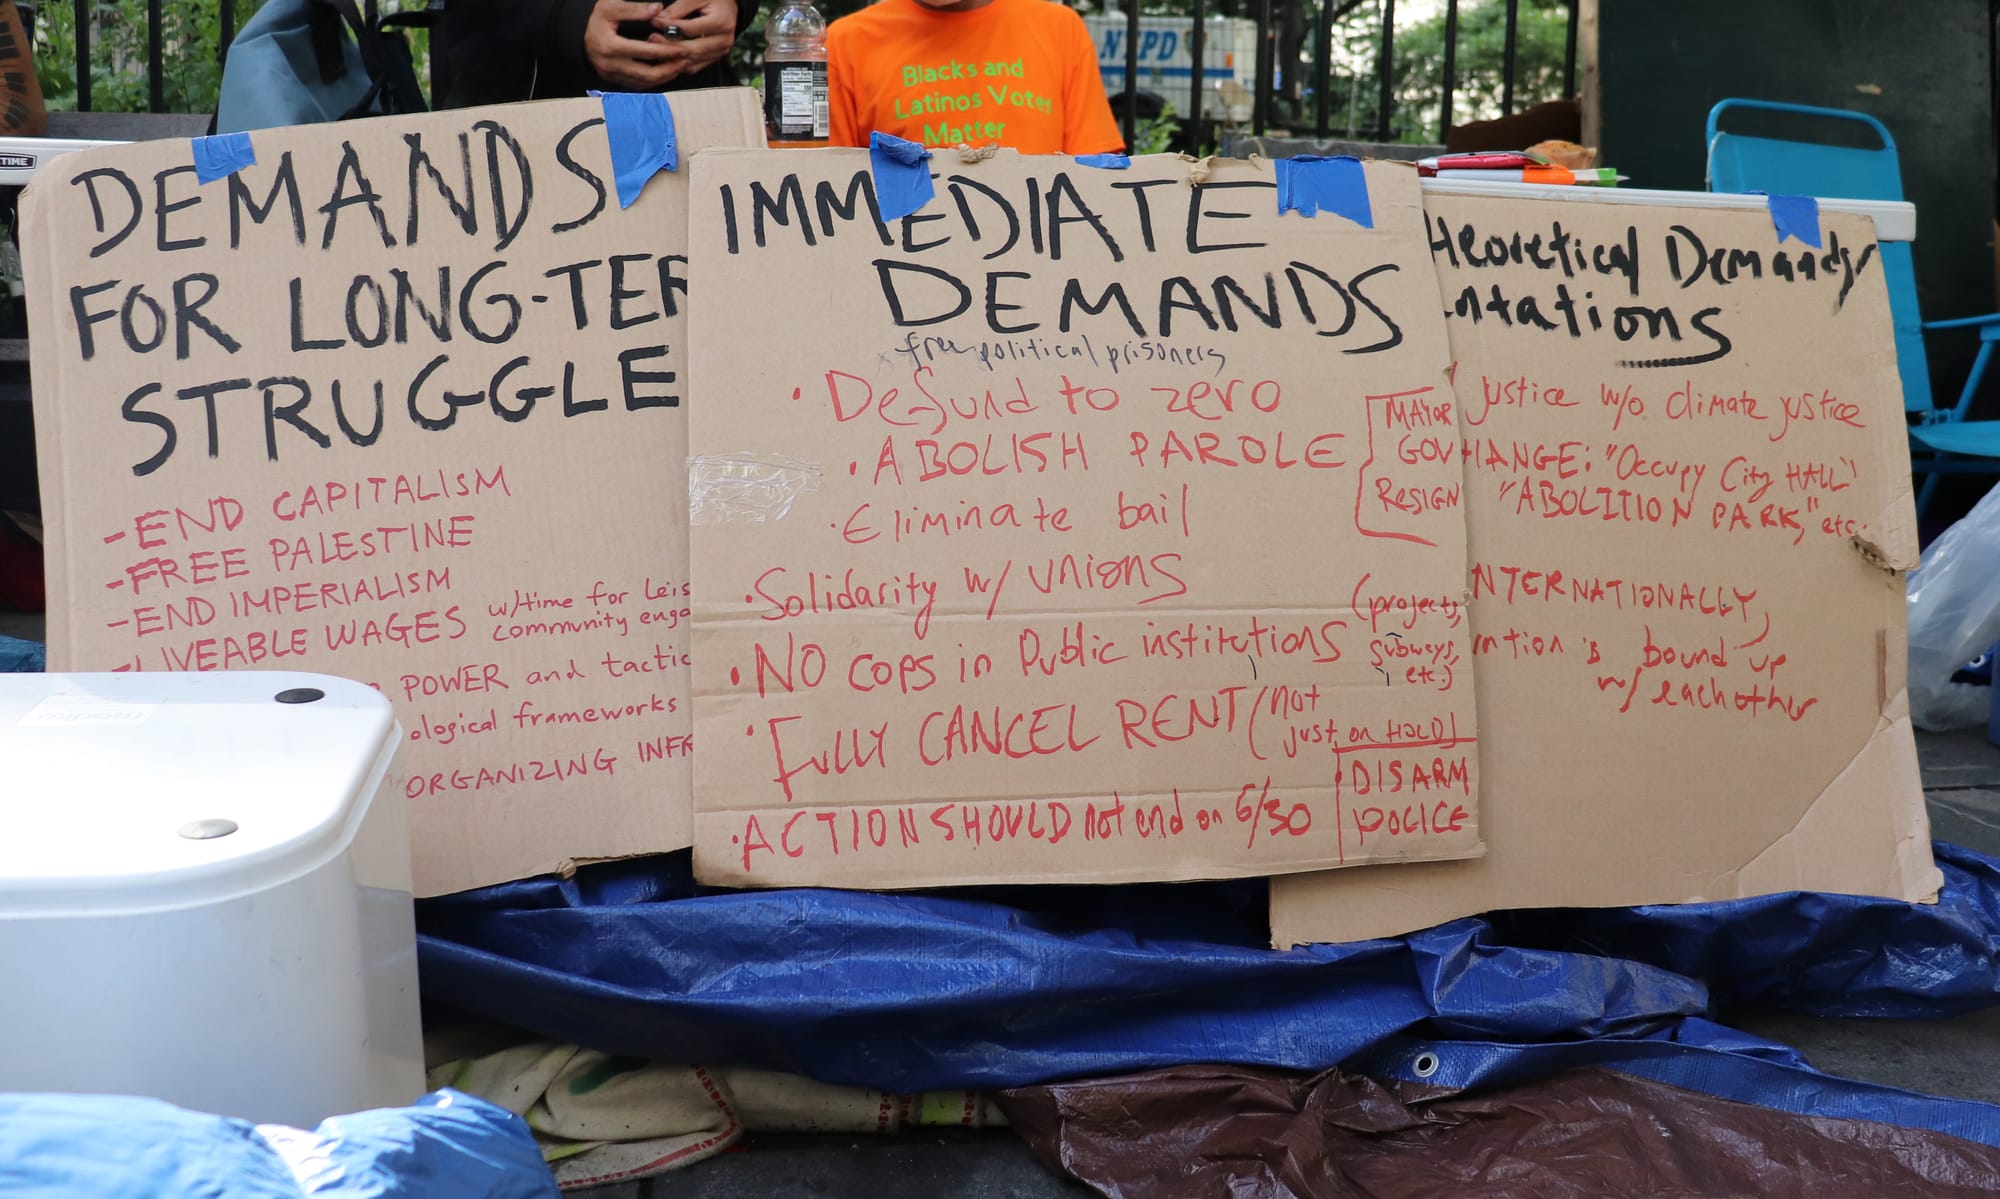 NYPD
Blacks and
Latinos Votes
Matter
TIME
DEMANDS
FOR LONG-TER
STRUGGLE
-END CAPITALISM
-FREE PALESTINE
-END IMPERIALISM
-LIVEABLE WAGES w/time for Leis
community enga
POWER and tactic
ological frameworks
ORGANIZING INFR
IMMEDIATE
DEMANDS
x free political prisoners
• Defund to zero
• ABOLISH PAROLE
• Eliminate bail
• Solidarity w/ unions
• NO COPS in Public institutions (projects, subways, etc.)
• Fully CANCEL RENT (not just on HOLD)
• ACTION SHOULD not end on 6/30
MAYOR
GOV
RESIGN
DISARM
POLICE
heoretical Demands/
ntations
justice w/o climate justice
HANGE: "Occupy City HALL"
"ABOLITION PARK," etc.
NTERNATIONALLY,
ntion is bound up
w/ each other